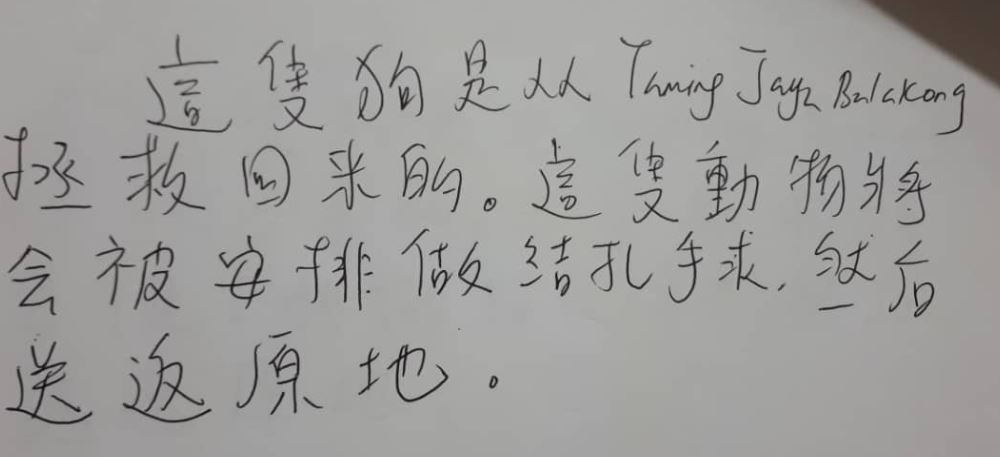 這隻狗是从 Taming Jaya Balakong
拯救回来的。這隻動物将
会被安排做结扎手术，然后
送返原地。